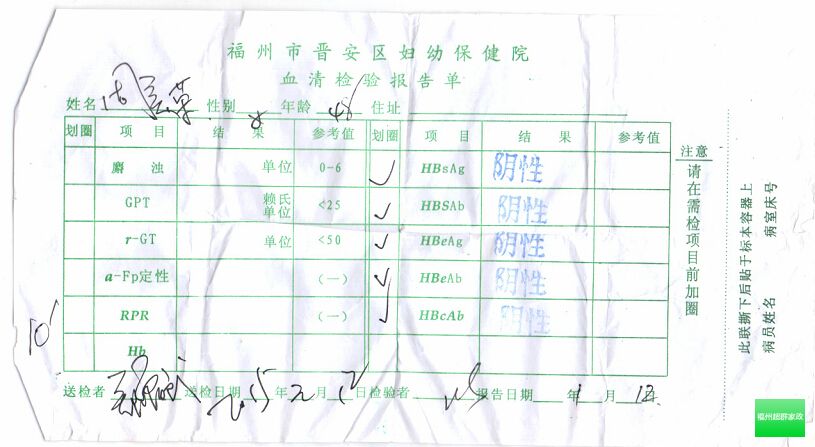 福州市晋安区妇幼保健院
血清检验报告单
姓名 性别 年龄 48 住址
划圈 项目 结果 参考值 划圈 项目 结果 参考值
麝浊 单位 0-6 HBsAg 阴性
GPT 赖氏单位 <25 HBSAb 阴性
r-GT 单位 <50 HBeAg 阴性
a-Fp定性 (—) HBeAb 阴性
RPR (—) HBcAb 阴性
Hb
送检者 送检日期 2015年2月12日 检验者 报告日期 年 月 12日
注意
请在需检项目前加圈
此联撕下后贴于标本容器上
病员姓名 病室床号
10
福州超群家政